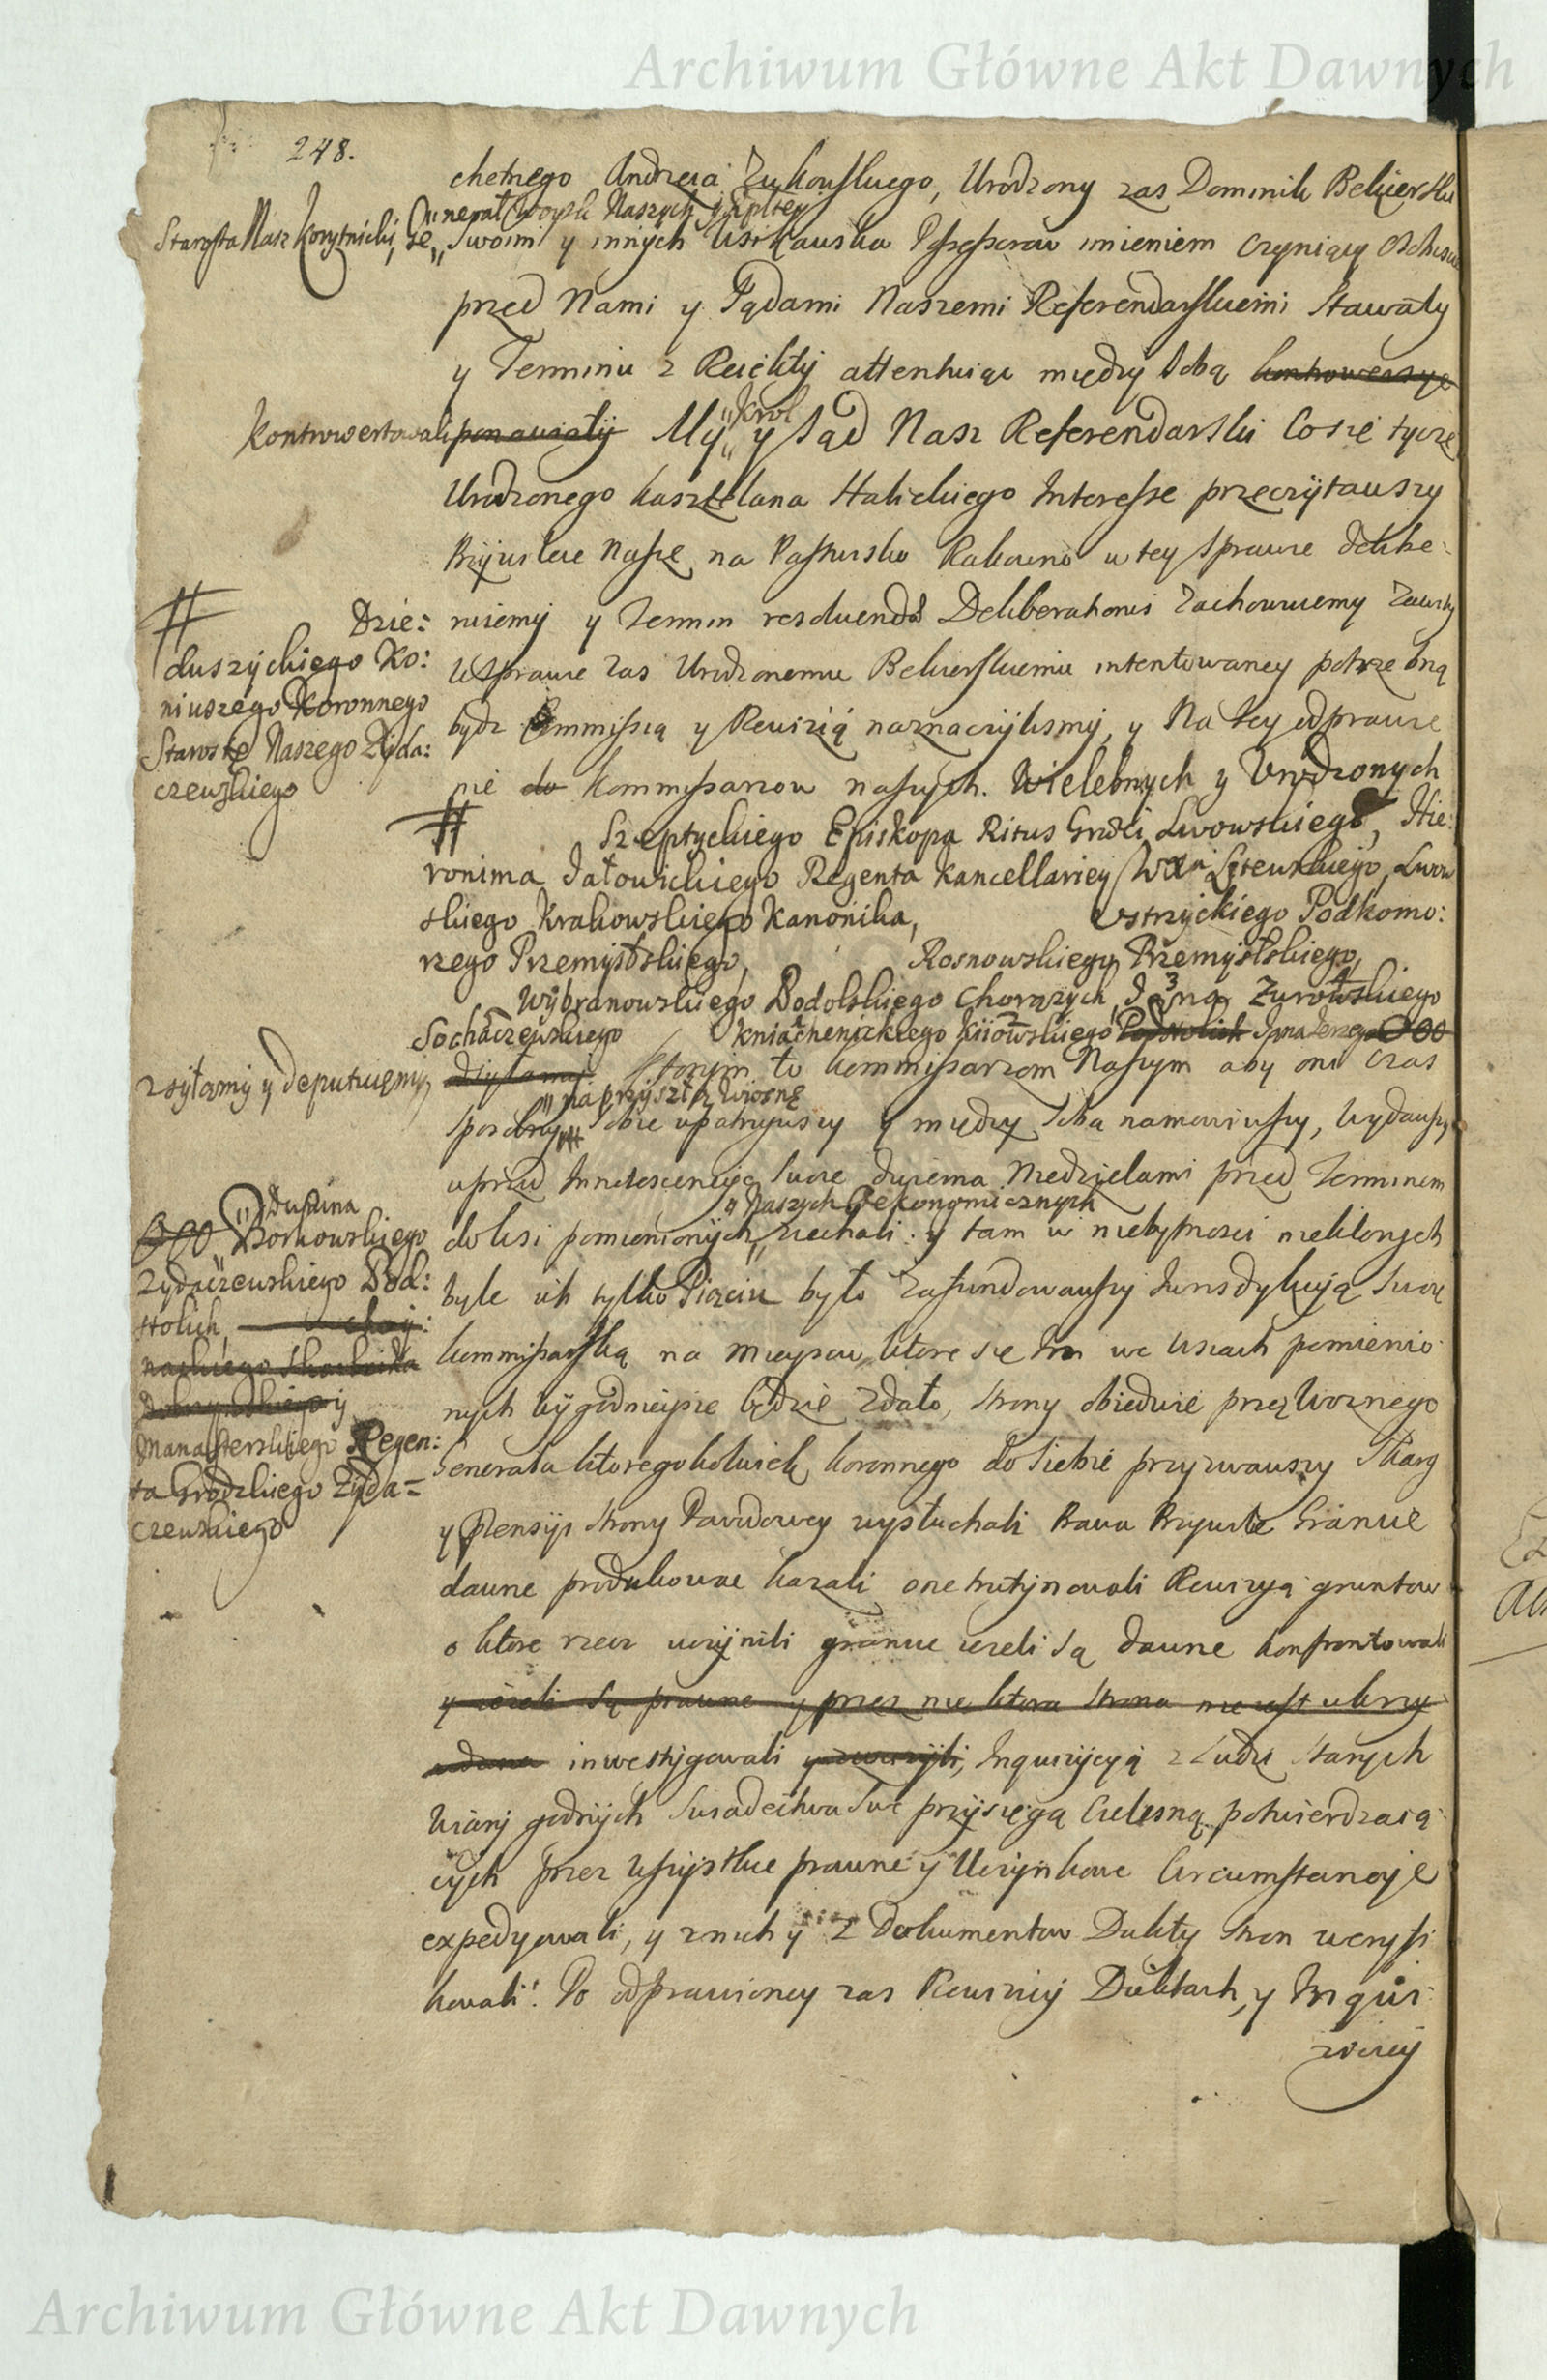 Archiwum Główne Akt Dawnych
248.
chetnego Andrzeia Zukowskiego, Urodzony zas Dominik Bekierski
Starosta Nasz Korytnicki, Generał Woysk Naszych
Swoim y innych imieniem czyniący
przed Nami y Sądami Naszemi Referendarskiemi Stawały
y Terminu z attentuiąc między Sobą kontrowersye
kontrowertowali ponawiały My Krol y Sąd Nasz Referendarski Co się tycze
Urodzonego Kasztelana Halickiego Interesse przeczytawszy
Przywileie Nasze na w tey Sprawie delibe:
ruiemy y Termin resolvendæ Deliberationis Zachowuiemy
W Sprawie zas Urodzonemu Bekierskiemu intentowaney potrzebną
bydz Commissią y Rewizią naznaczylismy, y Na tey odprawie
nie do Kommissarzow naszych. Wielebnych y Urodzonych
#
Dzie:
duszyckiego Ko:
niuszego Koronnego
Starostę Naszego Zyda:
czewskiego
# Szeptyckiego Episkopa Ritus Græci Lwowskiego, Hie:
ronima Jałowickiego Regenta Kancellariey W Litewskiego, Lwow
skiego Krakowskiego Kanonika, Ustrzyckiego Podkomo:
rzego Przemyślskiego, Rosnowskiego Przemyślskiego,
Wybranowskiego Podolskiego Chorążych, Jana Zurowskiego
Sochaczewskiego Kniachenickiego Kiiowskiego Podstolich Jana Jerzego
zsyłamy y deputuiemy, ktorym to Kommissarzom Naszym aby oni czas
na przyszłą wiosnę
sposobny Sobie upatrzywszy y między Sobą namowiwszy, wydawszy
wprzod Innotescencyą Swoie dwiema Niedzielami przed Terminem
Naszych Oekonomicznych
do Wsi pomienionych ziechali y tam w niebytnosci niektorych
byle ich tylko Pięciu było zafundowawszy Iurisdykcyą Swoię
Kommissarską na mieyscu ktore się Im we Wsiach pomienio
nych wygodnieysze będzie zdało, Strony obiedwie przez Woznego
Generała ktoregokolwiek koronnego do siebie przyzwawszy Skarg
y Pretensyi Strony Powodowey wysłuchali Prawa Przywileie Granice
dawne produkowac kazali one trutynowali Rewizyą gruntow
o ktore rzecz uczynili granice iezeli są dawne konfrontowali
y iezeli są prawne y przez nie ktora Strona nie iest ukrzy
wdzona inwestygowali y zwazyli, Inquizycyą z Ludzi Starych
Wiary godnych Swiadectwa Swe przysięgą Cielesną potwierdzaią
cych przez wszystkie prawne y Uczynkowe Circumstancyje
expedyowali, y z nich y z Dokumentow Dukty Stron weryfi
kowali. Po odprawioney zas Rewizyi Duktach, y Inqui
zycyi
Dukina
Borkowskiego
Zydaczewskiego Pod:
stolich,
y
Manasterskiego Regen:
ta Grodzkiego Zyda=
czewskiego
Archiwum Główne Akt Dawnych